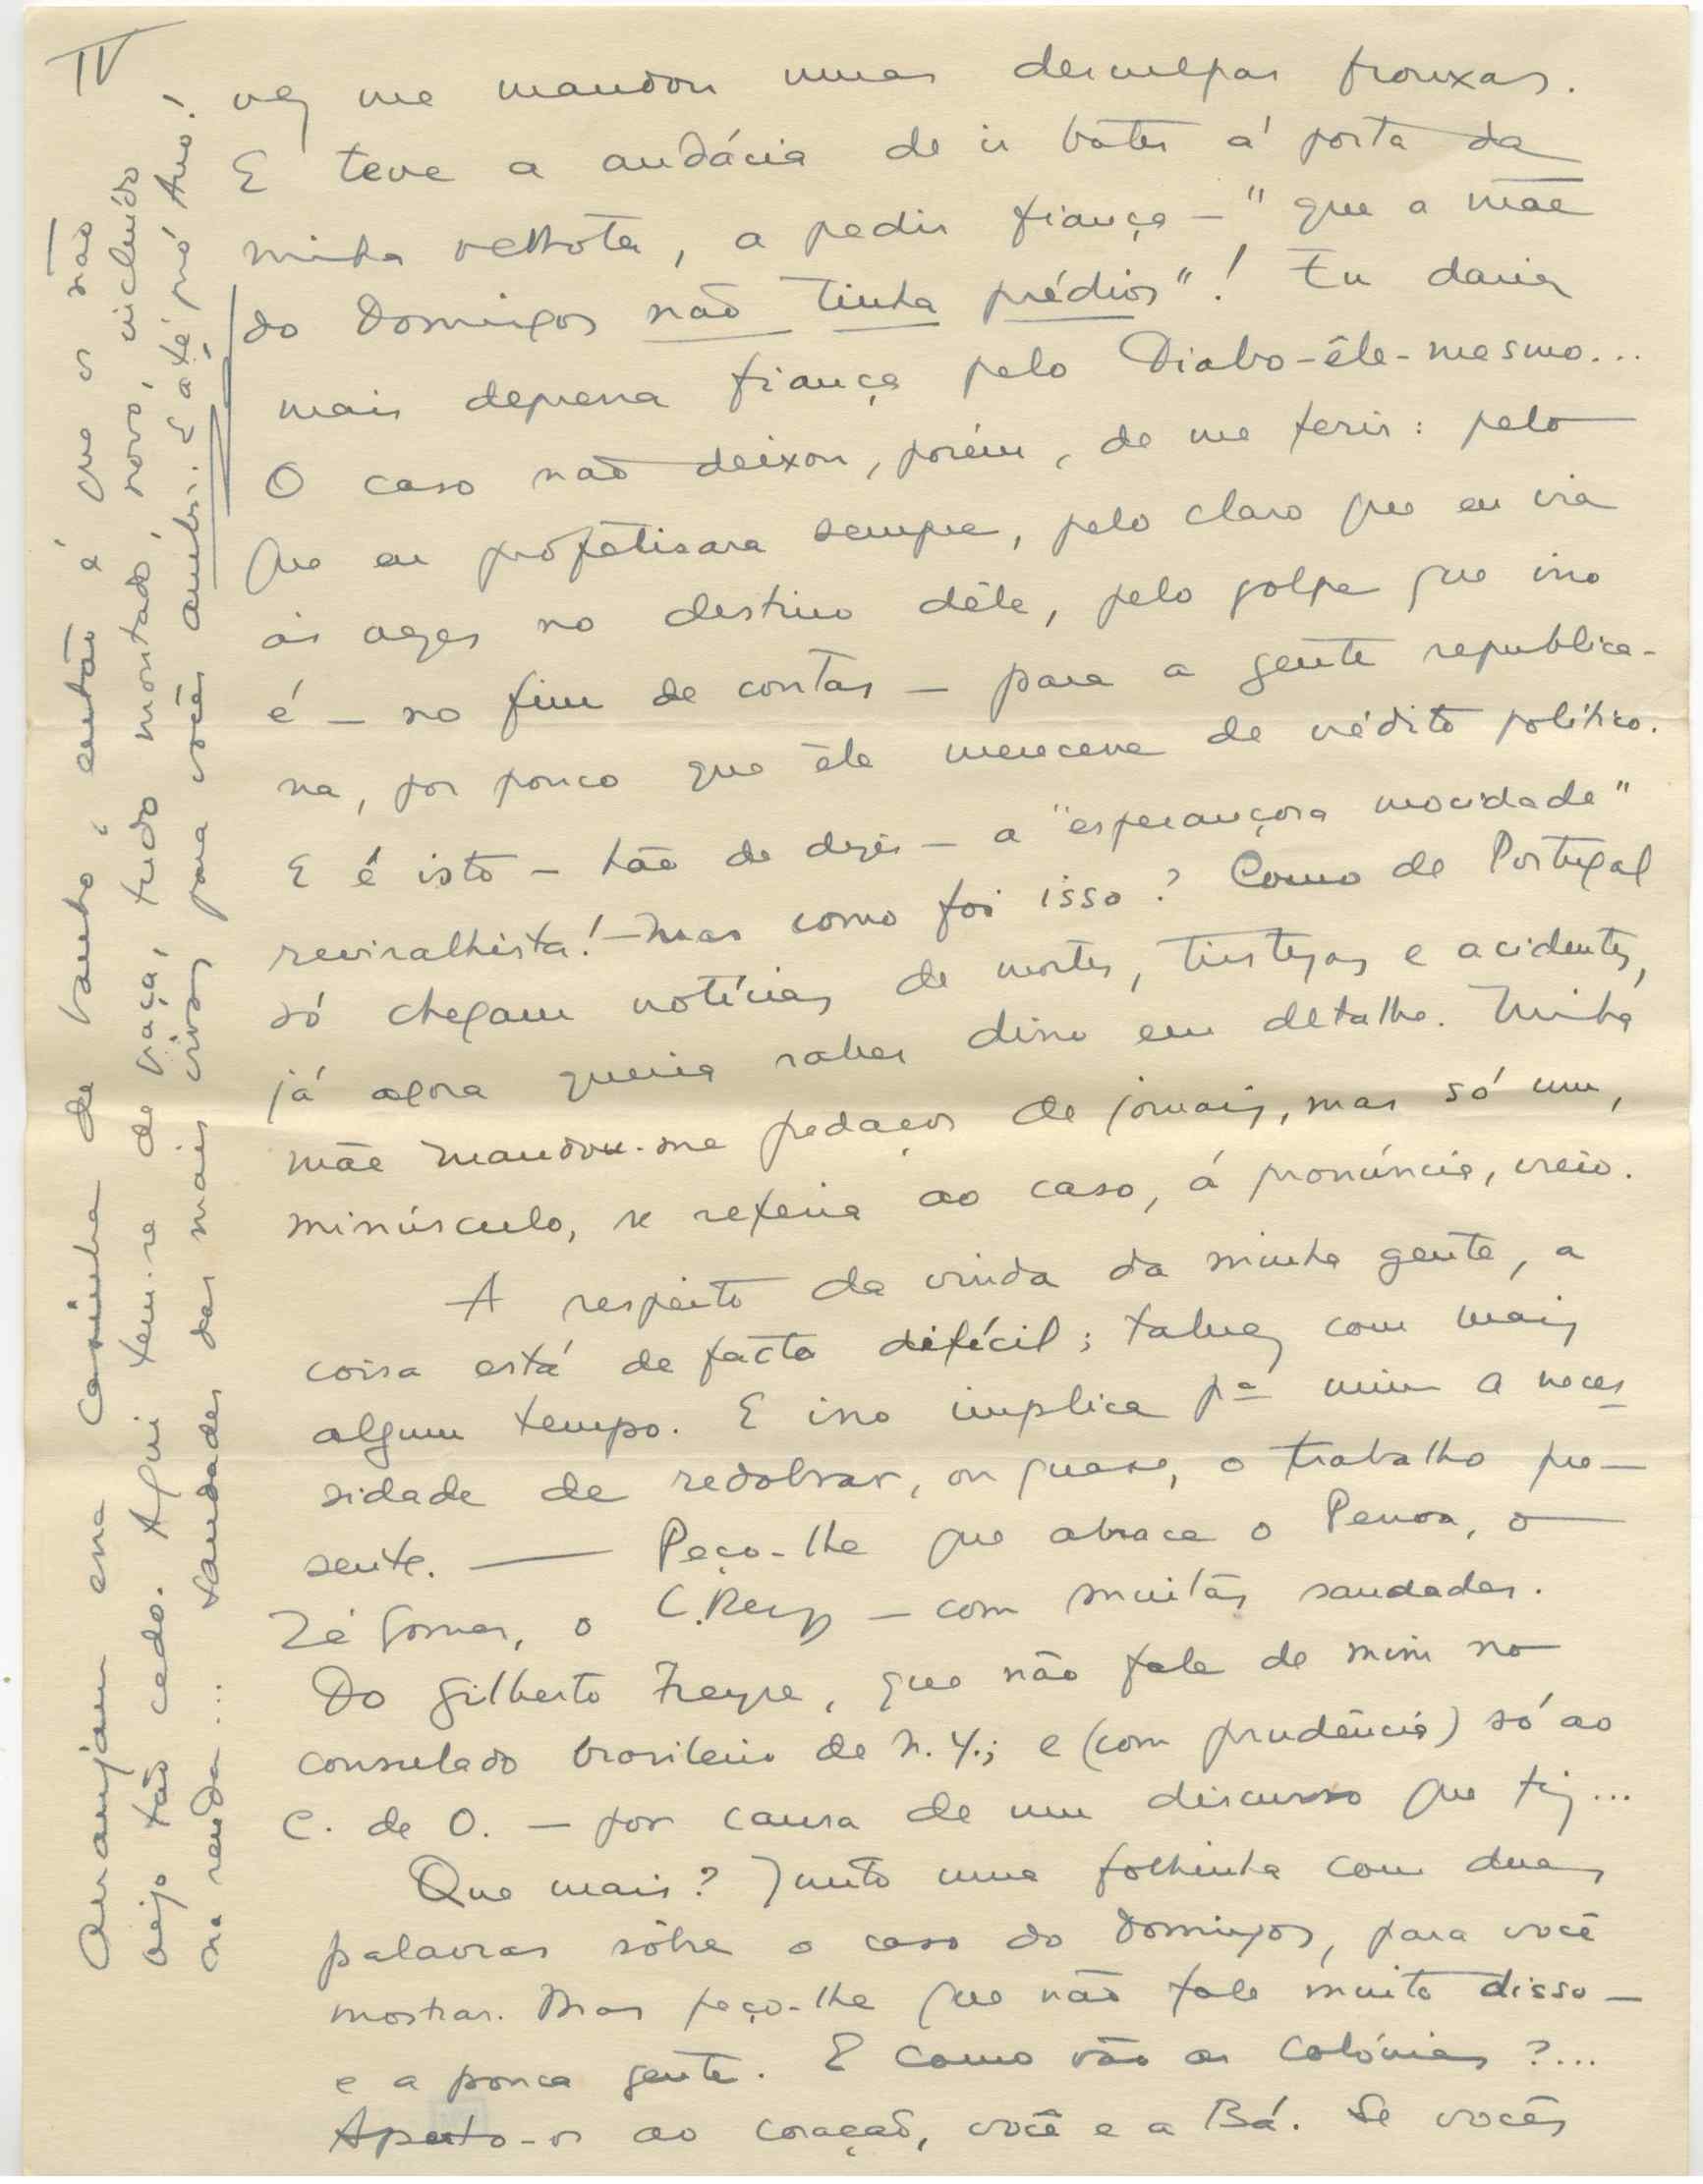 IV
vez me mandou umas desculpas frouxas.
E teve a audácia de ir bater á porta da
minha velhota, a pedir fiança — "que a mãe
do Domingos não tinha prédios"! Eu daria
mais depressa fiança pelo Diabo-êle-mesmo...
O caso não deixou, porém, de me ferir: pelo
que eu profetisara sempre, pelo claro que eu via
ás vezes no destino dêle, pelo golpe que isso
é — no fim de contas — para a gente republica-
na, por pouco que êle merecesse de crédito político.
E é isto — hão de dizer — a "esperançosa mocidade"
reviralhista! — Mas como foi isso? Como de Portugal
só chegam notícias de mortes, tristezas e acidentes,
já agora queria saber disso em detalhe. Minha
mãe mandou-me pedaços de jornais, mas só um,
minúsculo, se referia ao caso, á pronúncia, creio.
A respeito da vinda da minha gente, a
coisa está de facto difícil; talvez com mais
algum tempo. E isso implica pª mim a neces
sidade de redobrar, ou quase, o trabalho pre-
sente. — Peço-lhe que abrace o Pessoa, o
Zé Gomes, o C. Reys — com muitas saudades.
Do Gilberto Freyre, que não fale de mim no
consulado brasileiro de N. Y.; e (com prudência) só ao
C. de O. — por causa de um discurso que fiz...
Que mais? Junto uma folhinha com duas
palavras sôbre o caso do Domingos, para você
mostrar. Mas peço-lhe que não fale muito disso —
e a pouca gente. E como vão as colónias?...
Aperto-os ao coração, você e a Bá. Se vocês
arranjam essa casinha de banho, então é que os não
vejo tão cedo. Aqui tem-se de graça, tudo montado, novo, incluído
na renda... Saudades das mais vivas para vocês ambos. E até pró Ano!